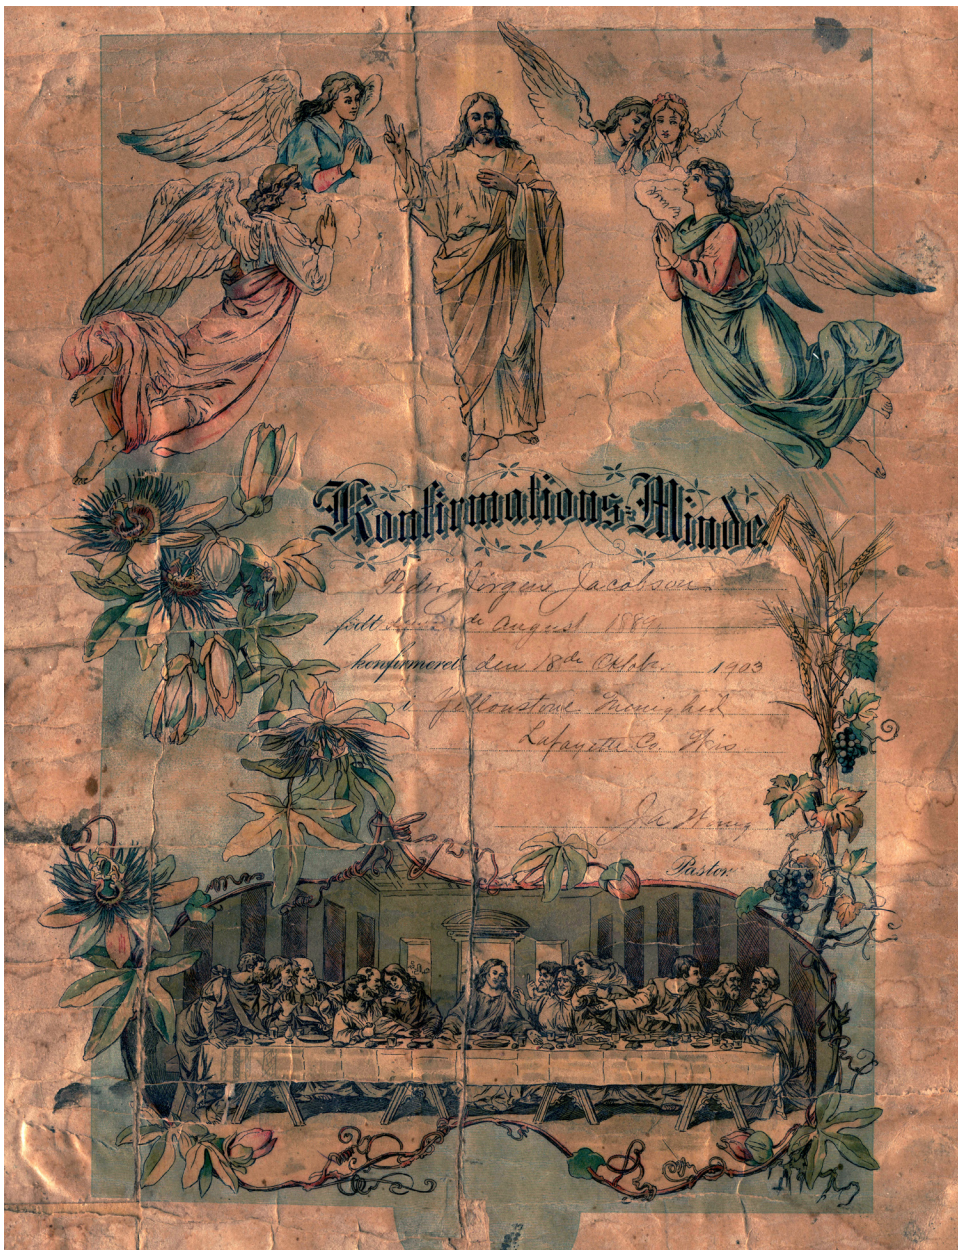 Konfirmations-Minde.
Peder Jörgen Jacobson
født den de August 188
konfirmeret den 18de Oktobr. 1903
i Yellowstone Menighed
Lafayette Co. Wis.
Pastor